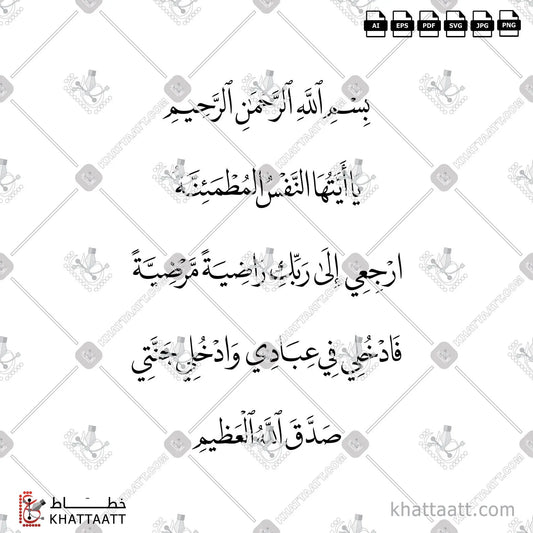 AI EPS PDF SVG JPG PNG
بِسْمِ ٱللَّهِ ٱلرَّحْمَٰنِ ٱلرَّحِيمِ
يَا أَيَّتُهَا النَّفْسُ الْمُطْمَئِنَّةُ
ارْجِعِي إِلَىٰ رَبِّكِ رَاضِيَةً مَّرْضِيَّةً
فَادْخُلِي فِي عِبَادِي وَادْخُلِي جَنَّتِي
صَدَّقَ ٱللَّهُ ٱلْعَظِيمِ
خطــاط
KHATTAATT
khattaatt.com
KHATTAATT.COM